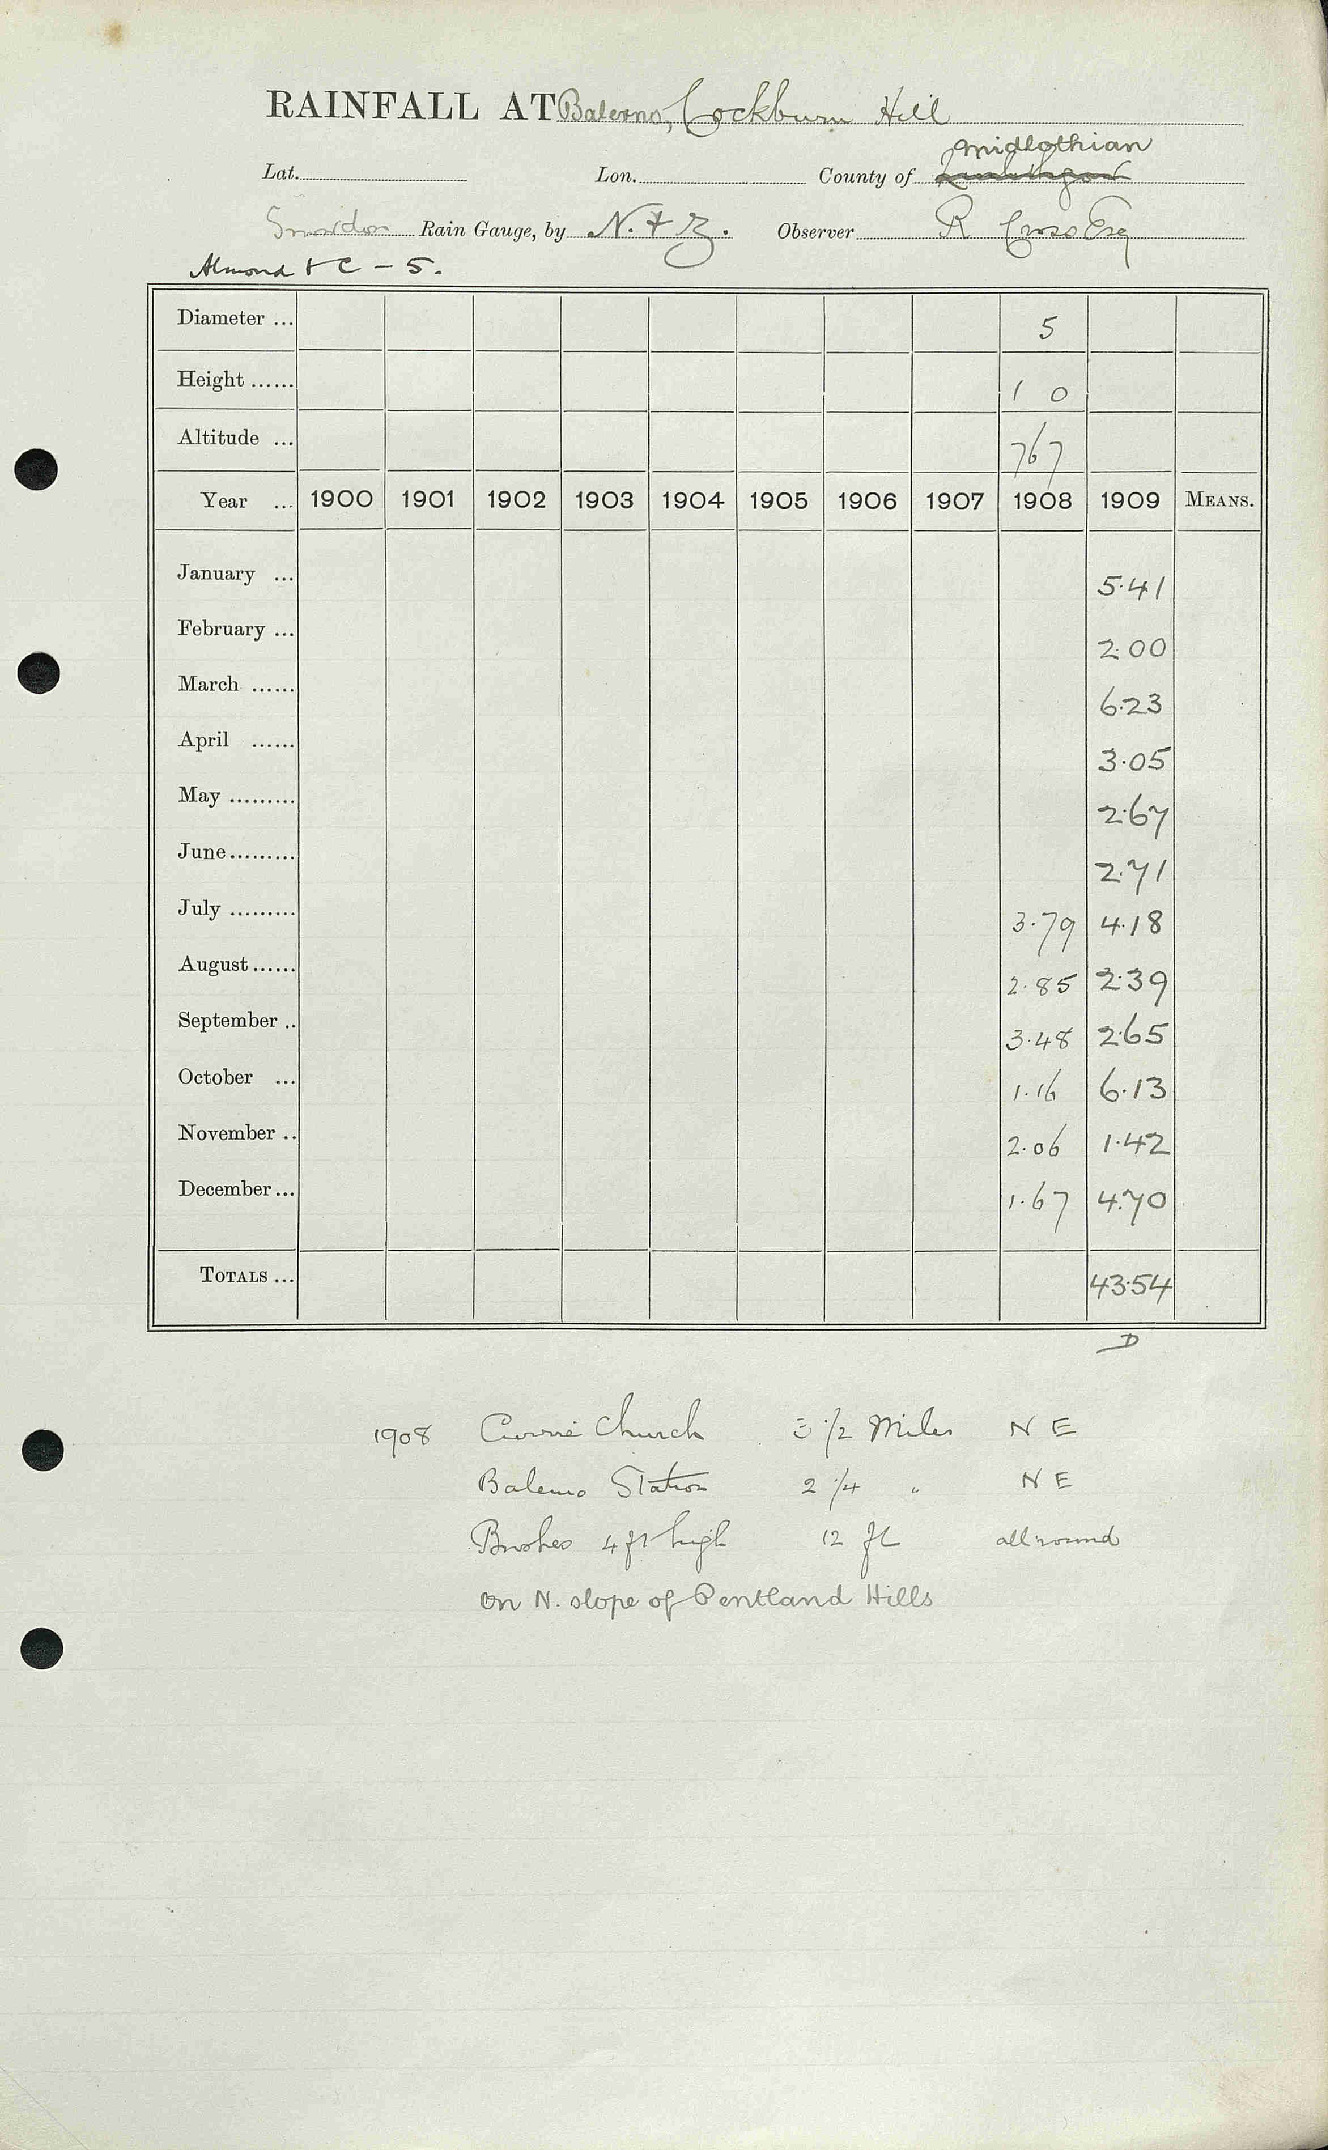 RAINFALL AT Balerno, Cockburn Hill
Midlothian
Lat. Lon. County of
Snowdon Rain Gauge, by N. & Z. Observer R Cross Esq
Almond & C - 5.
Diameter ... 5
Height ...... 1 0
Altitude ... 767
Year ... 1900 1901 1902 1903 1904 1905 1906 1907 1908 1909 MEANS.
January ... 5.41
February ... 2.00
March ...... 6.23
April ...... 3.05
May ......... 2.67
June ......... 2.71
July ......... 3.79 4.18
August ...... 2.85 2.39
September .. 3.48 2.65
October ... 1.16 6.13
November .. 2.06 1.42
December ... 1.67 4.70
TOTALS ... 43.54
D
1908 Currie Church 3 1/2 Miles N E
Balerno Station 2 1/4 " N E
Bushes 4 ft high 12 ft all round
On N. slope of Pentland Hills